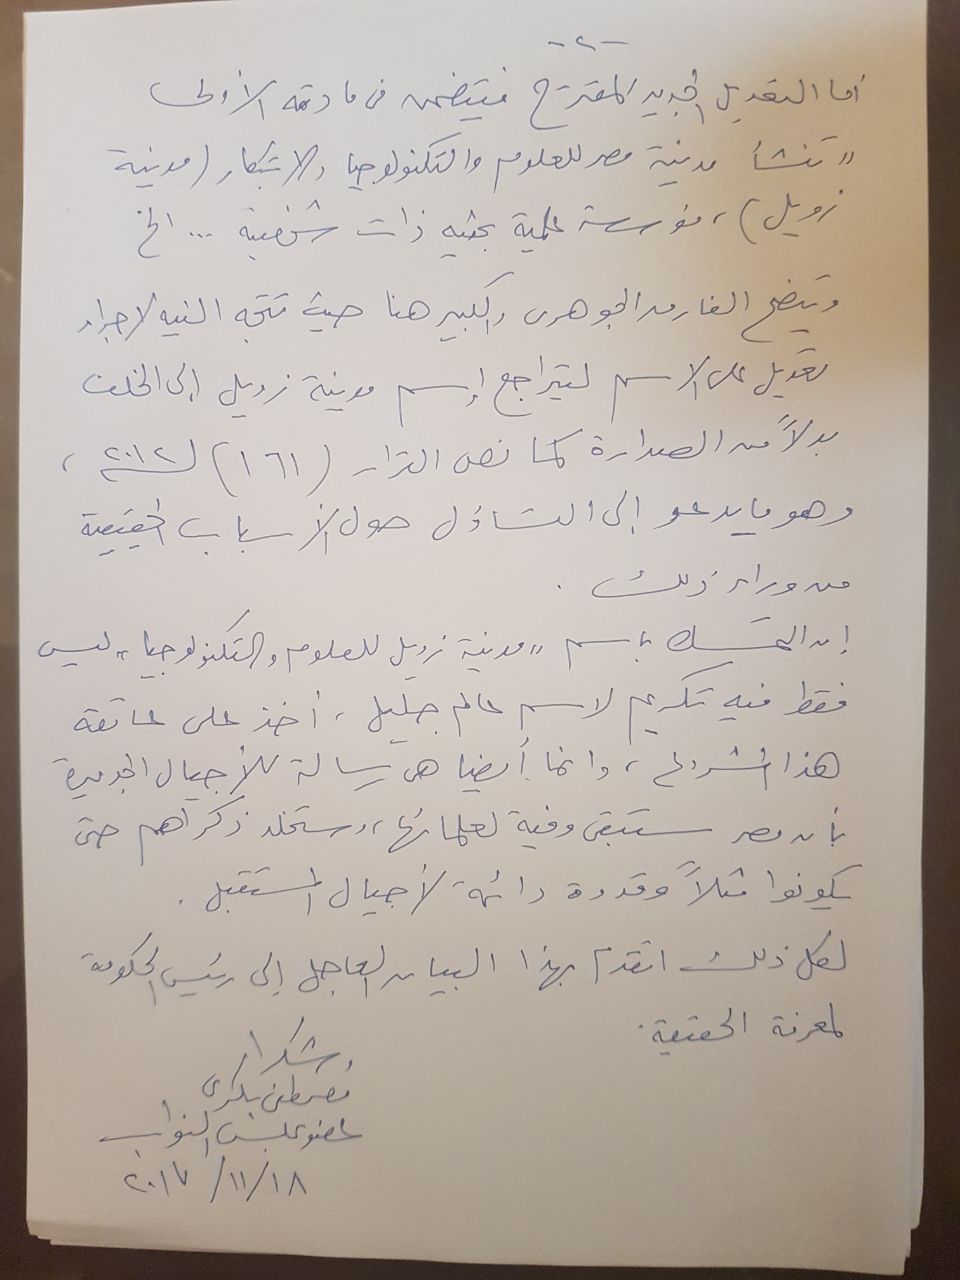 -٢-
أما التعديل الجديد المقترح فيتضمن فى مادته الأولى
"تنشأ مدينة مصر للعلوم والتكنولوجيا والابتكار (مدينة
زويل)، مؤسسة علمية بحثيه ذات شخصية ... الخ
ويتضح الفارق الجوهرى والكبير هنا حيث تتجه النيه لإجراء
تعديل على الاسم ليتراجع إسم مدينة زويل إلى الخلف
بدلاً من الصدارة كما نص القرار (١٦١) لسنة ٢٠١٢،
وهو ما يدعو إلى التساؤل حول الأسباب الحقيقية
من وراء ذلك .
إن التمسك باسم "مدينة زويل للعلوم والتكنولوجيا" ليس
فقط فيه تكريم لاسم عالم جليل، أخذ على عاتقه
هذا المشروع، وانما أيضا هى رسالة للأجيال الجديدة
بأن مصر ستبقى وفية لعلمائها، وستخلد ذكراهم حتى
يكونوا مثلاً وقدوة دائمة لأجيال المستقبل .
لكل ذلك اتقدم بهذا البيان العاجل إلى رئيس الحكومة
لمعرفة الحقيقية.
وشكرا
مصطفى بكرى
عضو مجلس النواب
١٨/١١/٢٠١٧